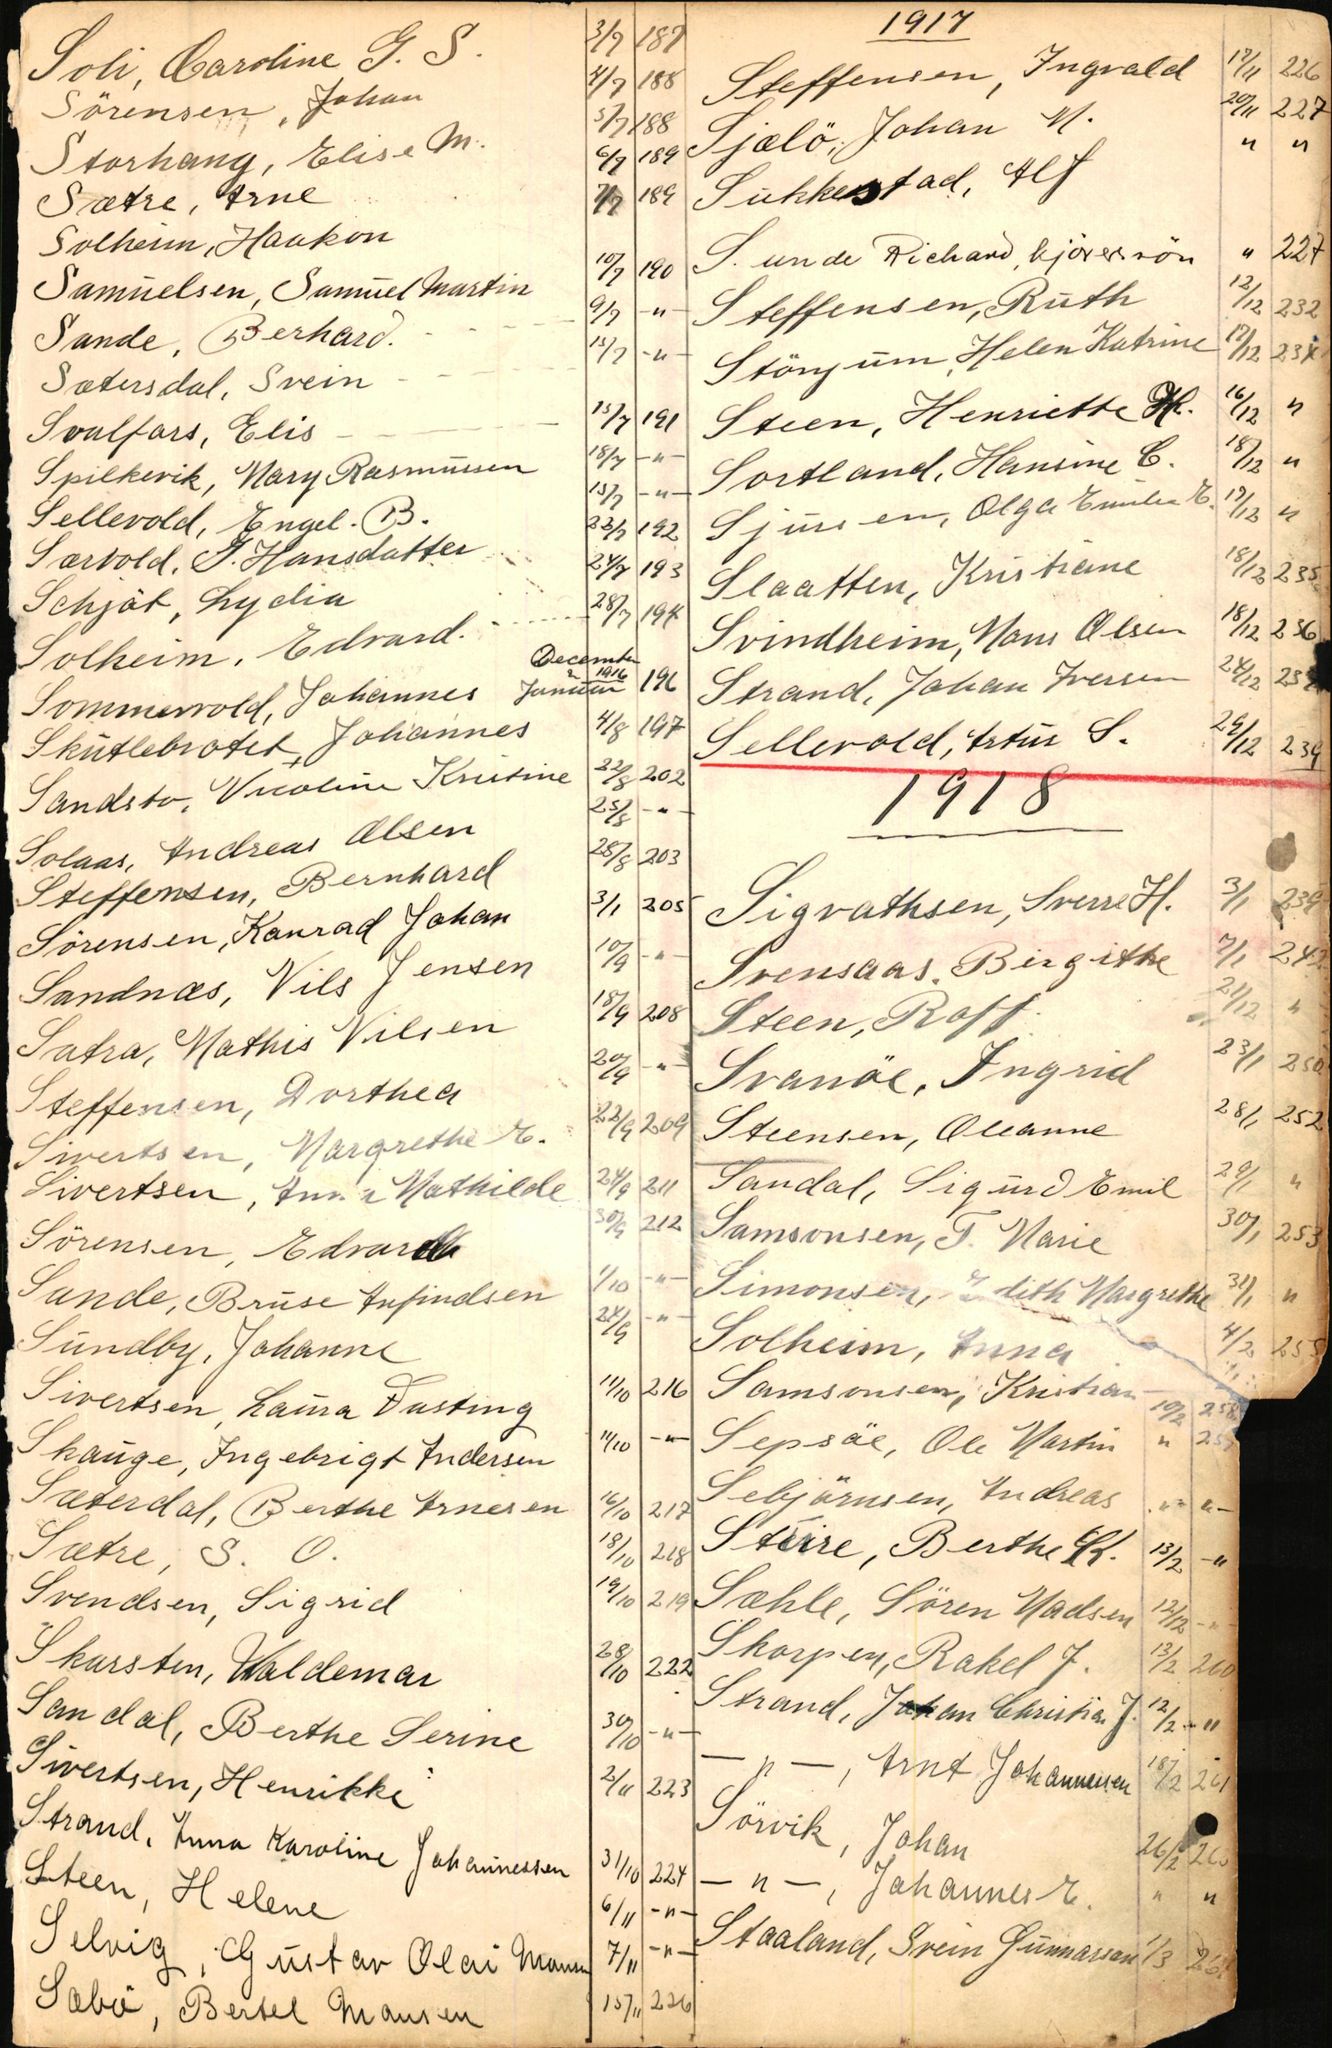 Soli, Caroline G. S. 3/7 187
Sörensen, Johan 4/7 188
Storhang, Elise M. 5/7 188
Sætre, Arne 6/7 189
Solheim, Haakon 7/7 189
Samuelsen, Samuel Martin 10/7 190
Sande, Berhard. 9/7 -"-
Sætersdal, Svein 15/7 -"-
Svalfors, Elis 15/7 191
Spilkevik, Mary Rasmussen 18/7 -"-
Sellevold, Engel. B. 15/7 -"-
Særvold, G. Hansdatter 22/7 192
Schjöt, Lydia 24/7 193
Solheim, Edvard. 28/7 194
Sommervold, Johannes December 1916 Januar 196
Skutlebrotet, Johannes 4/8 197
Sandsto, Nicoline Kristine 22/8 202
Solaas, Andreas Olsen 25/8 -"-
Steffensen, Bernhard 28/8 203
Sörensen, Konrad Johan 3/1 205
Sandnæs, Nils Jensen 10/9 -"-
Satra, Mathis Nilsen 18/9 208
Steffensen, Dorthea 20/9 -"-
Sivertsen, Margrethe E. 22/9 209
Sivertsen, Anna Mathilde 24/9 211
Sörensen, Edvard 30/9 212
Sande, Bruse Anfindsen 1/10 -"-
Sundby, Johanne 24/9 -"-
Sivertsen, Laura Fasting 11/10 216
Skauge, Ingebrigt Andersen 11/10 -"-
Sæterdal, Berthe Arnesen 16/10 217
Sætre, S. O. 18/10 218
Svendsen, Sigrid 19/10 219
Skarsten, Waldemar 28/10 222
Sandal, Berthe Serine 30/10 -"-
Sivertsen, Henrikke 2/11 223
Strand, Anna Karoline Johannessen 31/10 224
Steen, Helene 6/11 -"-
Selvig, Gustav Olai Monsen 7/11 -"-
Sæbö, Bertel Monsen 15/11 226
1917
Steffensen, Ingvald 17/11 226
Sjælö, Johan M. 20/11 227
Sukkestad, Alf " "
S. unde Richard, " 227
Steffensen, Ruth 12/12 232
Störjum, Helen Katrine 17/12 234
Steen, Henriette H. 16/12 "
Sortland, Hansine C. 18/12 "
Sjursen, Olga Emilie E. 17/12 "
Slaatten, Kristiane 18/12 235
Svindheim, Mons Olsen 18/12 236
Strand, Johan Iversen 24/12
Sellevold, Artur S. 29/12 239
1918
Sigvathsen, Sverre H. 3/1 239
Svensaas, Birgithe 7/1 242
Steen, Rolf 21/12 "
Svanöe, Ingrid 23/1 250
Steensen, Oleanne 28/1 252
Sandal, Sigurd Emil 29/1 "
Samsonsen, T. Marie 30/1 253
Simonsen, Edith Margrethe 31/1 "
Solheim, Anna 4/2 255
Samsonsen, Kristian 10/2 258
Sepsöe, Ole Martin " 257
Sebjörnsen, Andreas -"- "-
Støire, Berthe K. 13/2 -"
Sæhle, Sören Madsen 12/12 -"-
Skorpen, Rakel J. 13/2 260
Strand, Johan Christian J. 12/2 -"
-"-, Arnt Johannessen 18/2 261
Sörvik, Johan 26/2
-"-, Johannes E. " "
Staaland, Svein Gunnarson 1/3